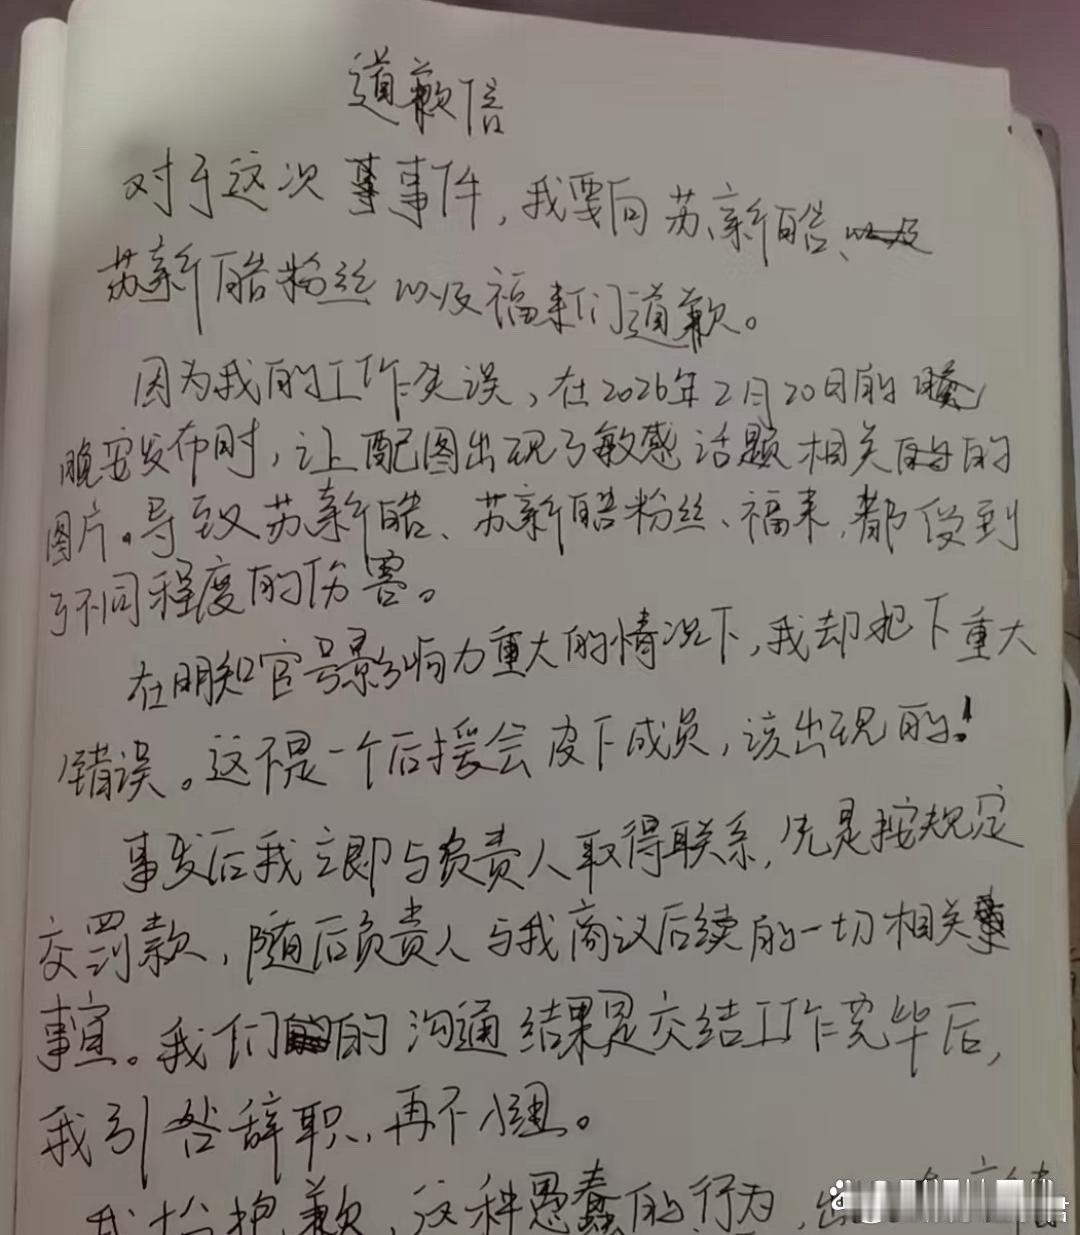 道歉信
对于这次事事件，我要向苏新皓、以及
苏新皓粉丝以及福来们道歉。
因为我的工作失误，在2026年2月20日的晚
晚安发布时，让配图出现了敏感话题相关的的
图片。导致苏新皓、苏新皓粉丝、福来，都受到
了不同程度的伤害。
在明知官号影响力重大的情况下，我却犯下重大
错误。这不是一个后援会皮下成员，该出现的！
事发后我立即与负责人取得联系，先是按规定
交罚款，随后负责人与我商议后续的一切相关事
事宜。我们的沟通结果是交结工作完毕后，
我引咎辞职，再不
我抱歉，这种愚蠢的行为，出